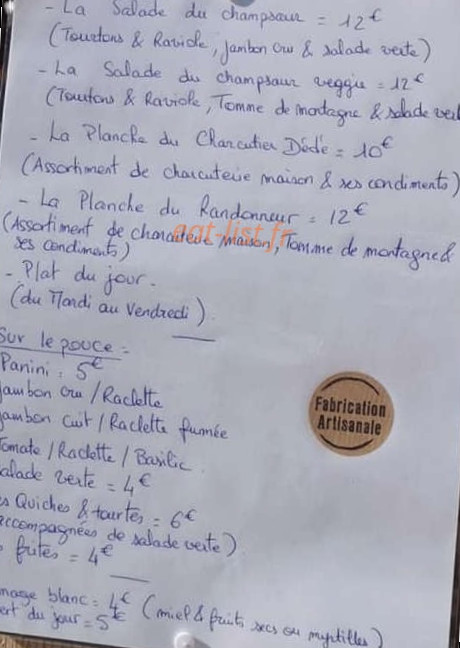 - La Salade du champsaur = 12€
(Tourtons & Raviole, jambon cru & salade verte)
- La Salade du champsaur veggie = 12€
(Tourtons & Raviole, Tomme de montagne & salade vert
- La Planche du Charcutier Dédé = 10€
(Assortiment de charcuterie maison & ses condiments)
- La Planche du Randonneur = 12€
(Assortiment de charcuterie maison, Tomme de montagne &
ses condiments)
agt-list.fr
- Plat du jour.
(du Mardi au Vendredi).
Sur le pouce =
Panini = 5€
jambon cru / Raclette
jambon cuit / Raclette fumée
Tomate / Raclette / Basilic.
alade verte = 4€
es Quiches & tourtes = 6€
accompagnées de salade verte)
s frites = 4€
mage blanc = 4€ (miel & fruits secs ou myrtilles)
ert du jour = 5€
Fabrication
Artisanale